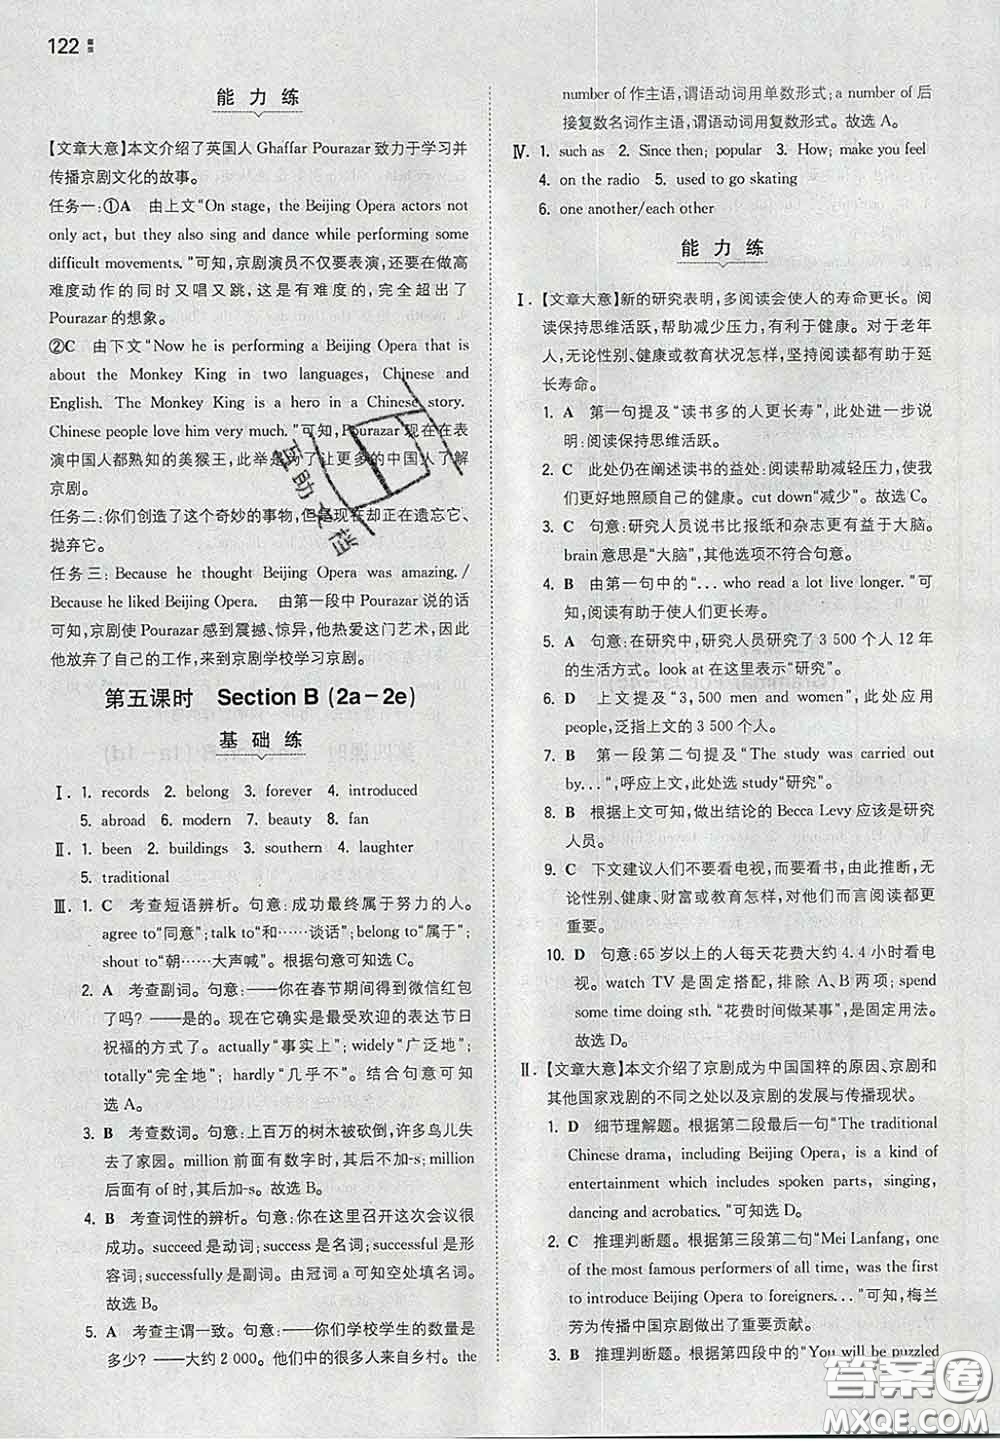 122
能 力 练
【文章大意】本文介绍了英国人 Ghaffar Pourazar 致力于学习并
传播京剧文化的故事。
任务一:①A 由上文“On stage, the Beijing Opera actors not
only act, but they also sing and dance while performing some
difficult movements. ”可知,京剧演员不仅要表演,还要在做高
难度动作的同时又唱又跳,这是有难度的,完全超出了
Pourazar 的想象。
②C 由下文“Now he is performing a Beijing Opera that is
about the Monkey King in two languages, Chinese and
English. The Monkey King is a hero in a Chinese story.
Chinese people love him very much. ”可知, Pourazar 现在在表
演中国人都熟知的美猴王,此举是为了让更多的中国人了解
京剧。
任务二:你们创造了这个奇妙的事物,但是现在却正在遗忘它、
抛弃它。
任务三:Because he thought Beijing Opera was amazing. /
Because he liked Beijing Opera. 由第一段中 Pourazar 说的话
可知,京剧使 Pourazar 感到震撼、惊异,他热爱这门艺术,因此
他放弃了自己的工作,来到京剧学校学习京剧。
第五课时 Section B (2a－2e)
基 础 练
Ⅰ. 1. records 2. belong 3. forever 4. introduced
5. abroad 6. modern 7. beauty 8. fan
Ⅱ. 1. been 2. buildings 3. southern 4. laughter
5. traditional
Ⅲ. 1. C 考查短语辨析。句意:成功最终属于努力的人。
agree to“同意”; talk to“和……谈话”; belong to“属于”;
shout to“朝……大声喊”。根据句意可知选 C。
2. A 考查副词。句意:——你在春节期间得到了微信红包
了吗? ——是的。现在它确实是最受欢迎的表达节日
祝福的方式了。actually“事实上”; widely“广泛地”;
totally“完全地”; hardly“几乎不”。结合句意可知
选 A。
3. B 考查数词。句意:上百万的树木被砍倒,许多鸟儿失
去了家园。million 前面有数字时,其后不加-s; million
后面有 of 时,其后加-s。故选 B。
4. B 考查词性的辨析。句意:你在这里召开这次会议很
成功。succeed 是动词; success 是名词; successful 是形
容词; successfully 是副词。由冠词 a 可知空处填名词。
故选 B。
5. A 考查主谓一致。句意:——你们学校学生的数量是
多少? ——大约 2 000。他们中的很多人来自乡村。the
number of 作主语,谓语动词用单数形式; a number of 后
接复数名词作主语,谓语动词用复数形式。故选 A。
Ⅳ. 1. such as 2. Since then; popular 3. How; make you feel
4. on the radio 5. used to go skating
6. one another/each other
能 力 练
Ⅰ. 【文章大意】新的研究表明,多阅读会使人的寿命更长。阅
读保持思维活跃,帮助减少压力,有利于健康。对于老年
人,无论性别、健康或教育状况怎样,坚持阅读都有助于延
长寿命。
1. A 第一句提及“读书多的人更长寿”,此处进一步说
明:阅读保持思维活跃。
2. C 此处仍在阐述读书的益处:阅读帮助减轻压力,使我
们更好地照顾自己的健康。cut down“减少”。故选 C。
3. C 句意:研究人员说书比报纸和杂志更有益于大脑。
brain 意思是“大脑”,其他选项不符合句意。
4. B 由第一句中的“... who read a lot live longer. ”可
知,阅读有助于使人们更长寿。
5. A 句意:在研究中,研究人员研究了 3 500 个人 12 年
的生活方式。look at 在这里表示“研究”。
6. D 上文提及“3, 500 men and women”,此处应用
people,泛指上文中的 3 500 个人。
7. B 第一段第二句提及“The study was carried out
by...”,呼应上文,此处选 study“研究”。
8. B 根据上文可知,做出结论的 Becca Levy 应该是研究
人员。
9. C 下文建议人们不要看电视,而要看书,由此推断,无
论性别、健康、财富或教育怎样,对他们而言阅读都更
重要。
10. D 句意:65 岁以上的人每天花费大约 4. 4 小时看电
视。watch TV 是固定搭配,排除 A、B 两项; spend
some time doing sth. “花费时间做某事”,是固定用法。
故选 D。
Ⅱ. 【文章大意】本文介绍了京剧成为中国国粹的原因、京剧和
其他国家戏剧的不同之处以及京剧的发展与传播现状。
1. D 细节理解题。根据第二段最后一句“The traditional
Chinese drama, including Beijing Opera, is a kind of
entertainment which includes spoken parts, singing,
dancing and acrobatics. ”可知选 D。
2. C 推理判断题。根据第三段第二句“Mei Lanfang, one of
the most famous performers of all time, was the first
to introduce Beijing Opera to foreigners... ”可知,梅兰
芳为传播中国京剧做出了重要贡献。
3. B 推理判断题。根据第四段中的“You will be puzzled
互助文档
答案圈
MXQE.COM